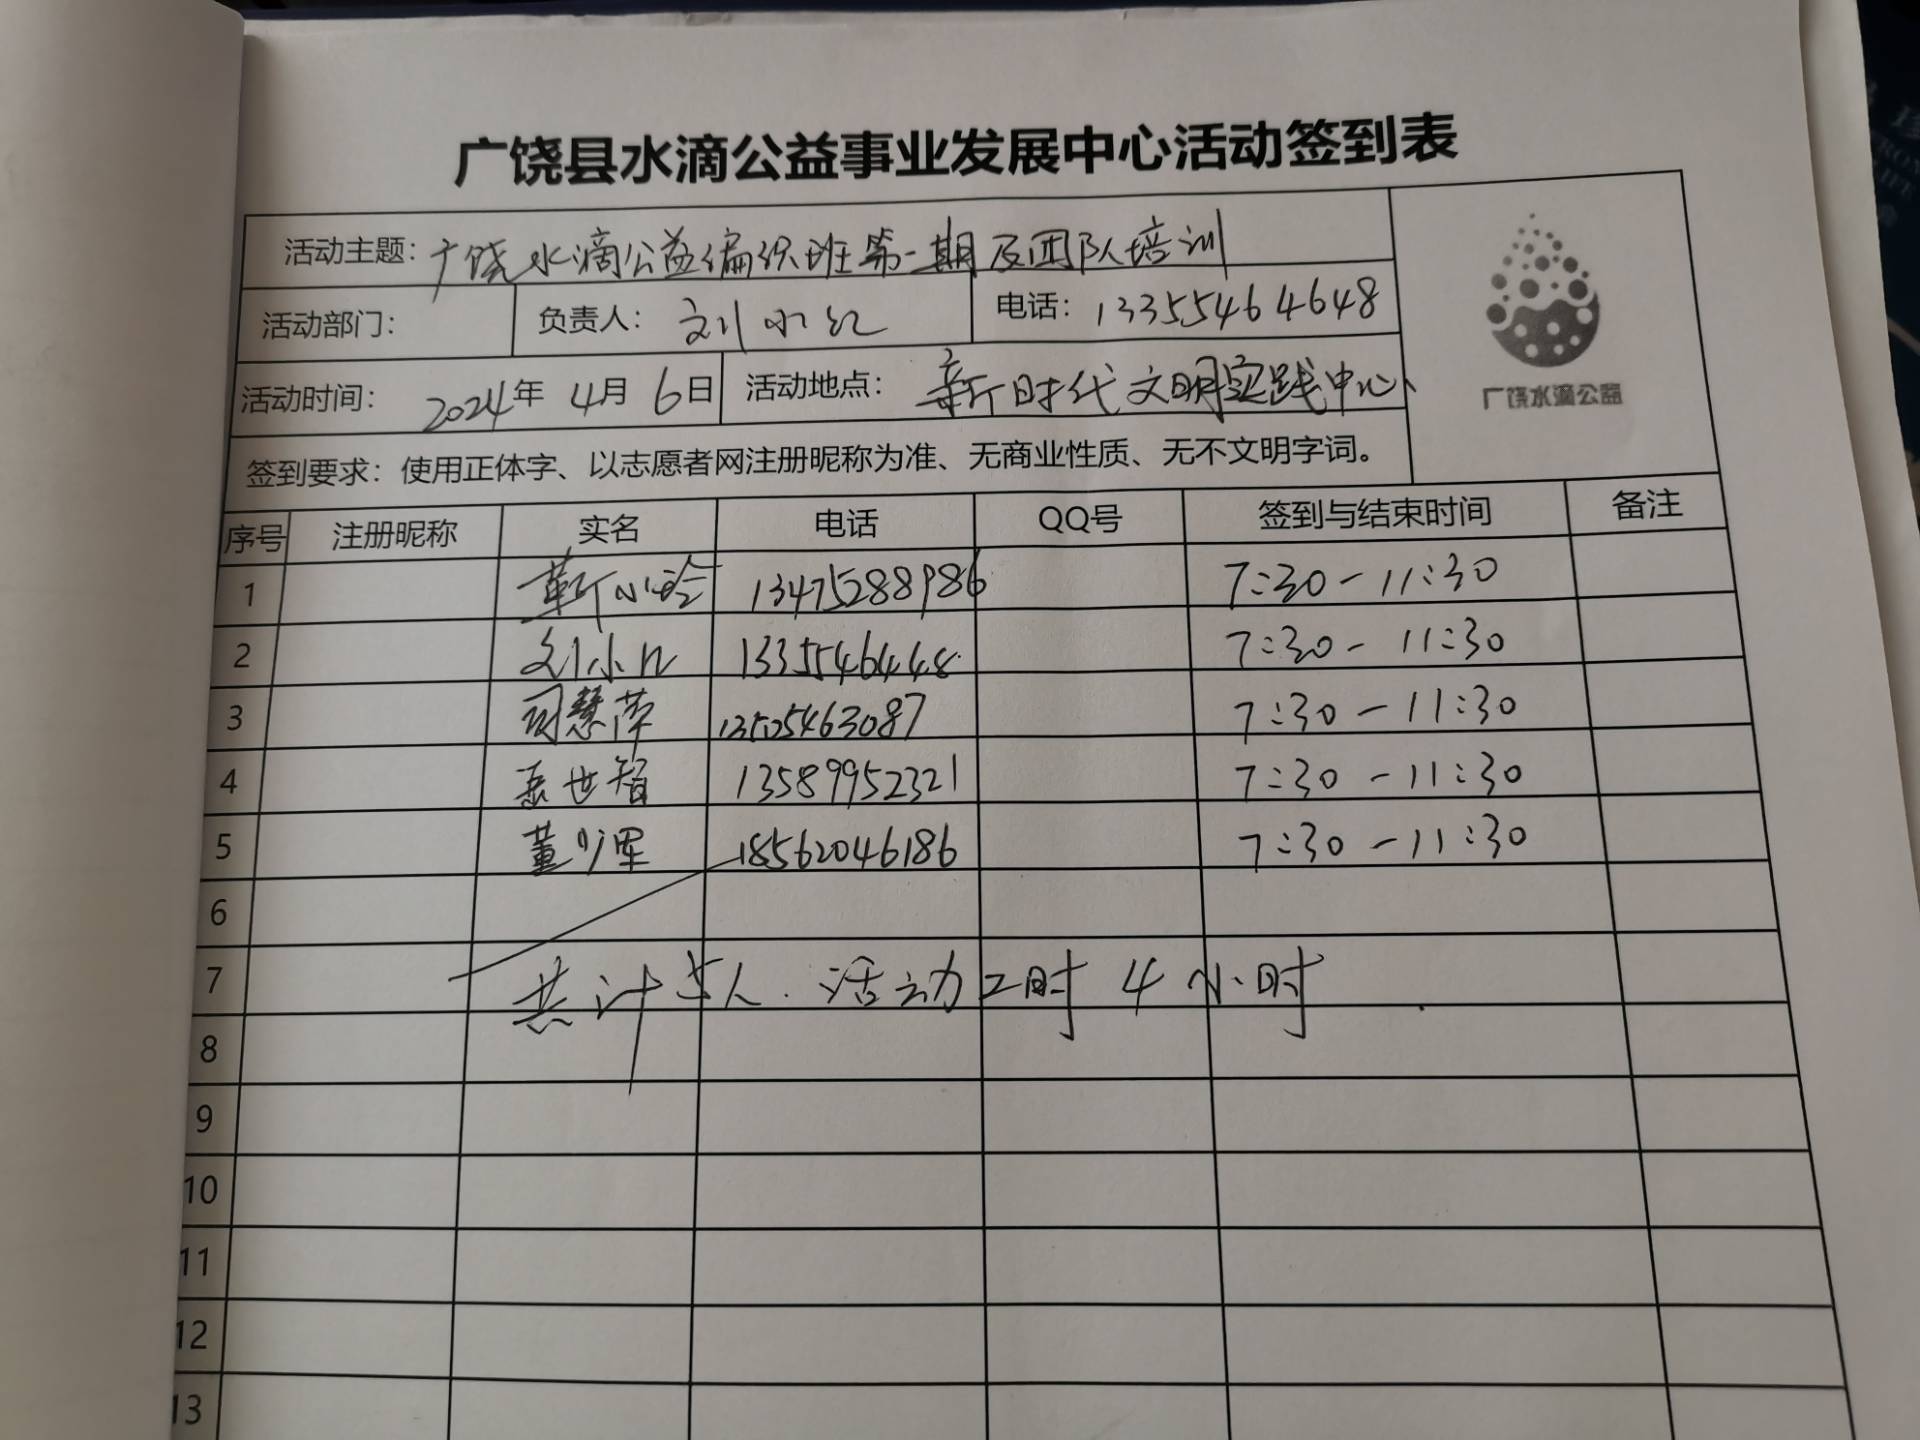 广饶县水滴公益事业发展中心活动签到表
活动主题：广饶水滴公益编织班第一期及团队培训
活动部门： 负责人：刘小红 电话：13355464648
活动时间：2024年4月6日 活动地点：新时代文明实践中心
广饶水滴公益
签到要求：使用正体字、以志愿者网注册昵称为准、无商业性质、无不文明字词。
序号 注册昵称 实名 电话 QQ号 签到与结束时间 备注
1 靳小玲 13475288986 7:30-11:30
2 刘小红 7:30-11:30
3 司慧萍 13505463087 7:30-11:30
4 世智 13589952321 7:30-11:30
5 董少军 18562046186 7:30-11:30
6
7 共计5人.活动工时4小时
8
9
10
11
12
13